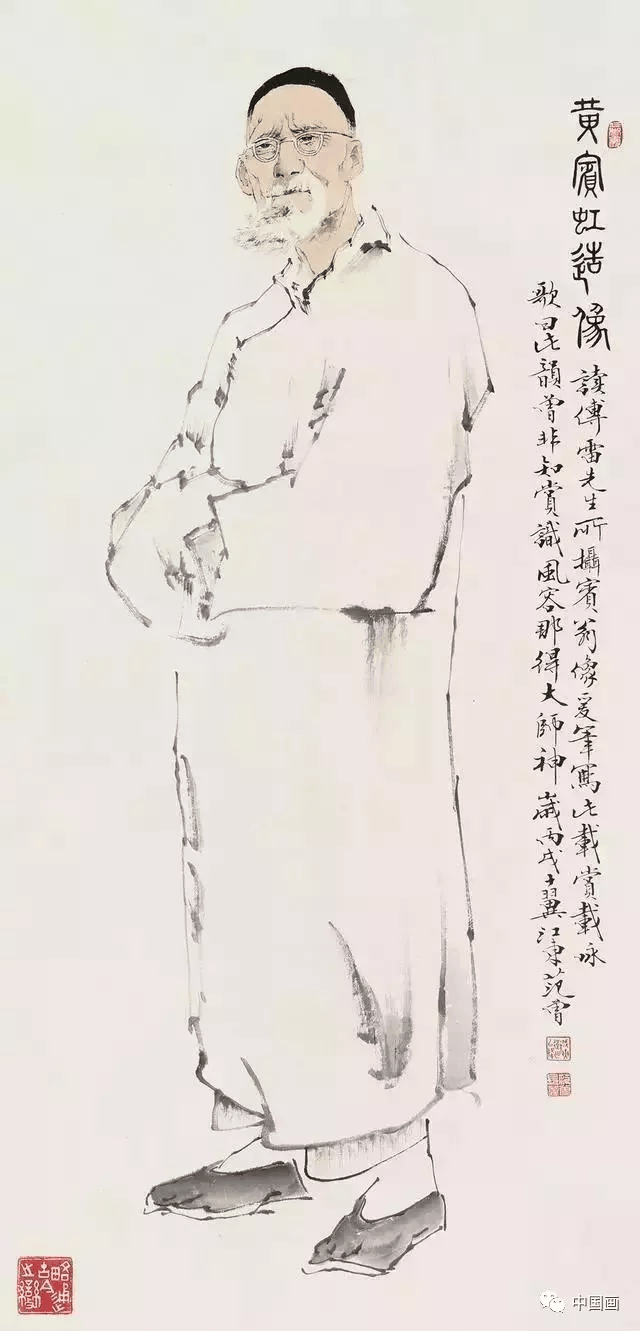 黄宾虹造像
讀傅雷先生所攝賓翁像爰筆寫此載賞載咏
歌曰此韻曾非知賞識風容那得大師神歲丙戌十翼江東范曾
中国画